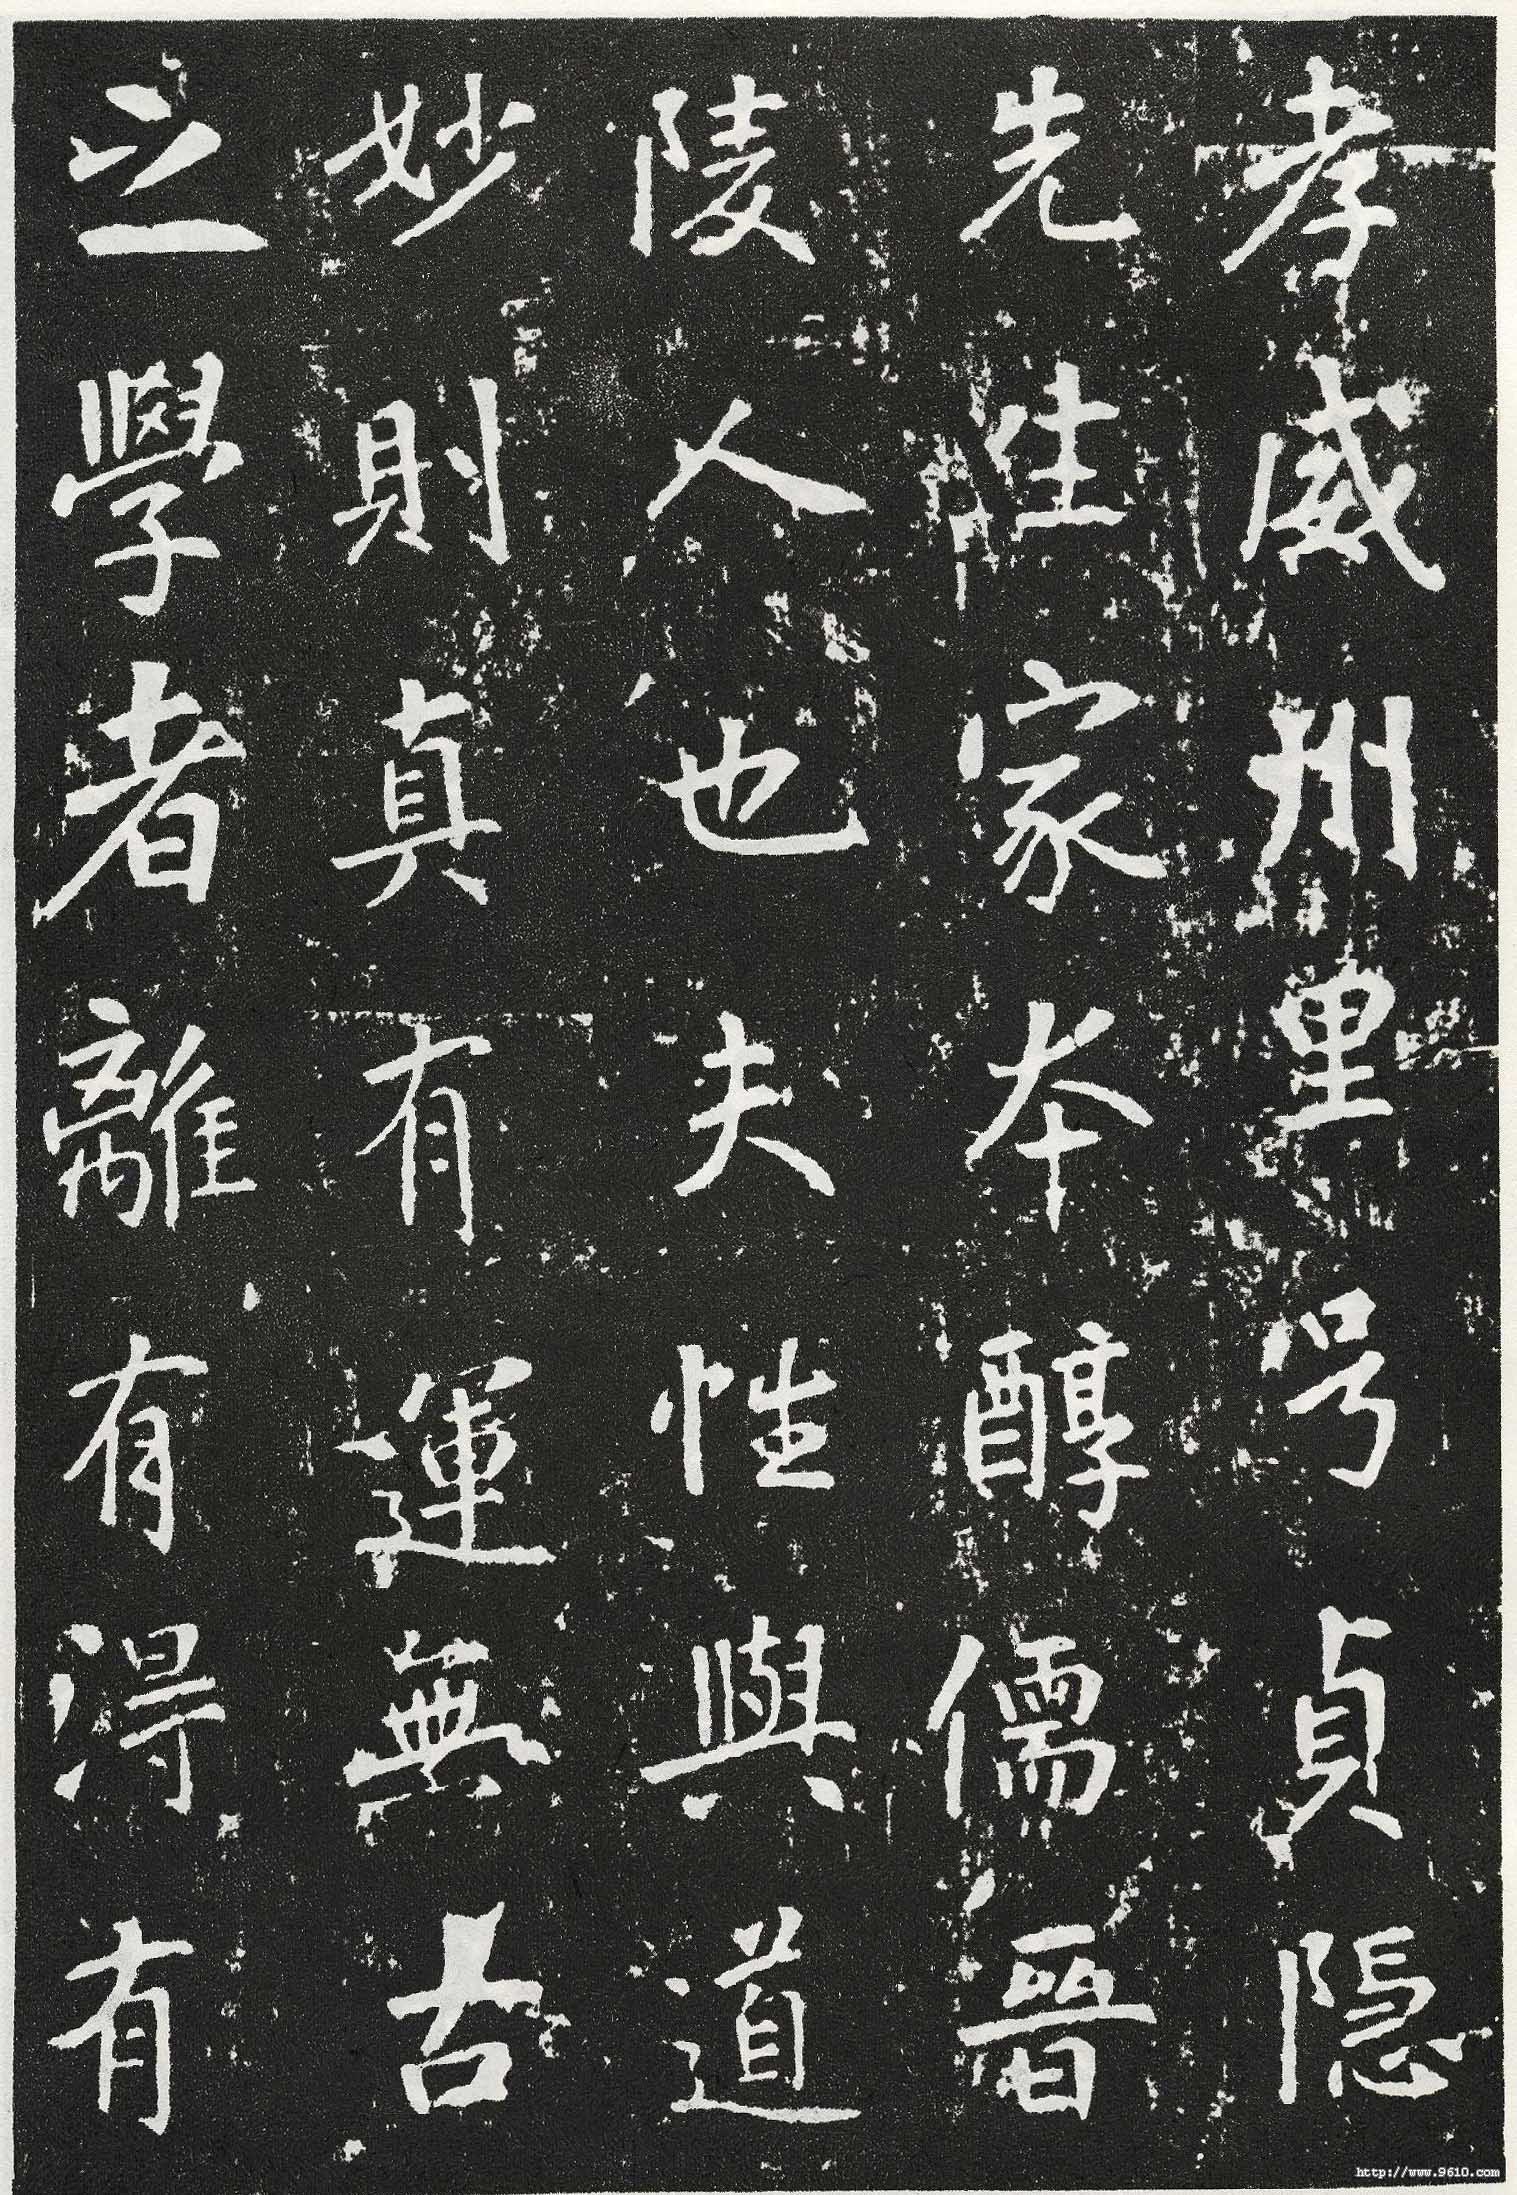 孝威州里号貞隠
先生家本醇儒晉
陵人也夫性與道
妙則真有運無古
之學者離有得有
http://www.9610.com